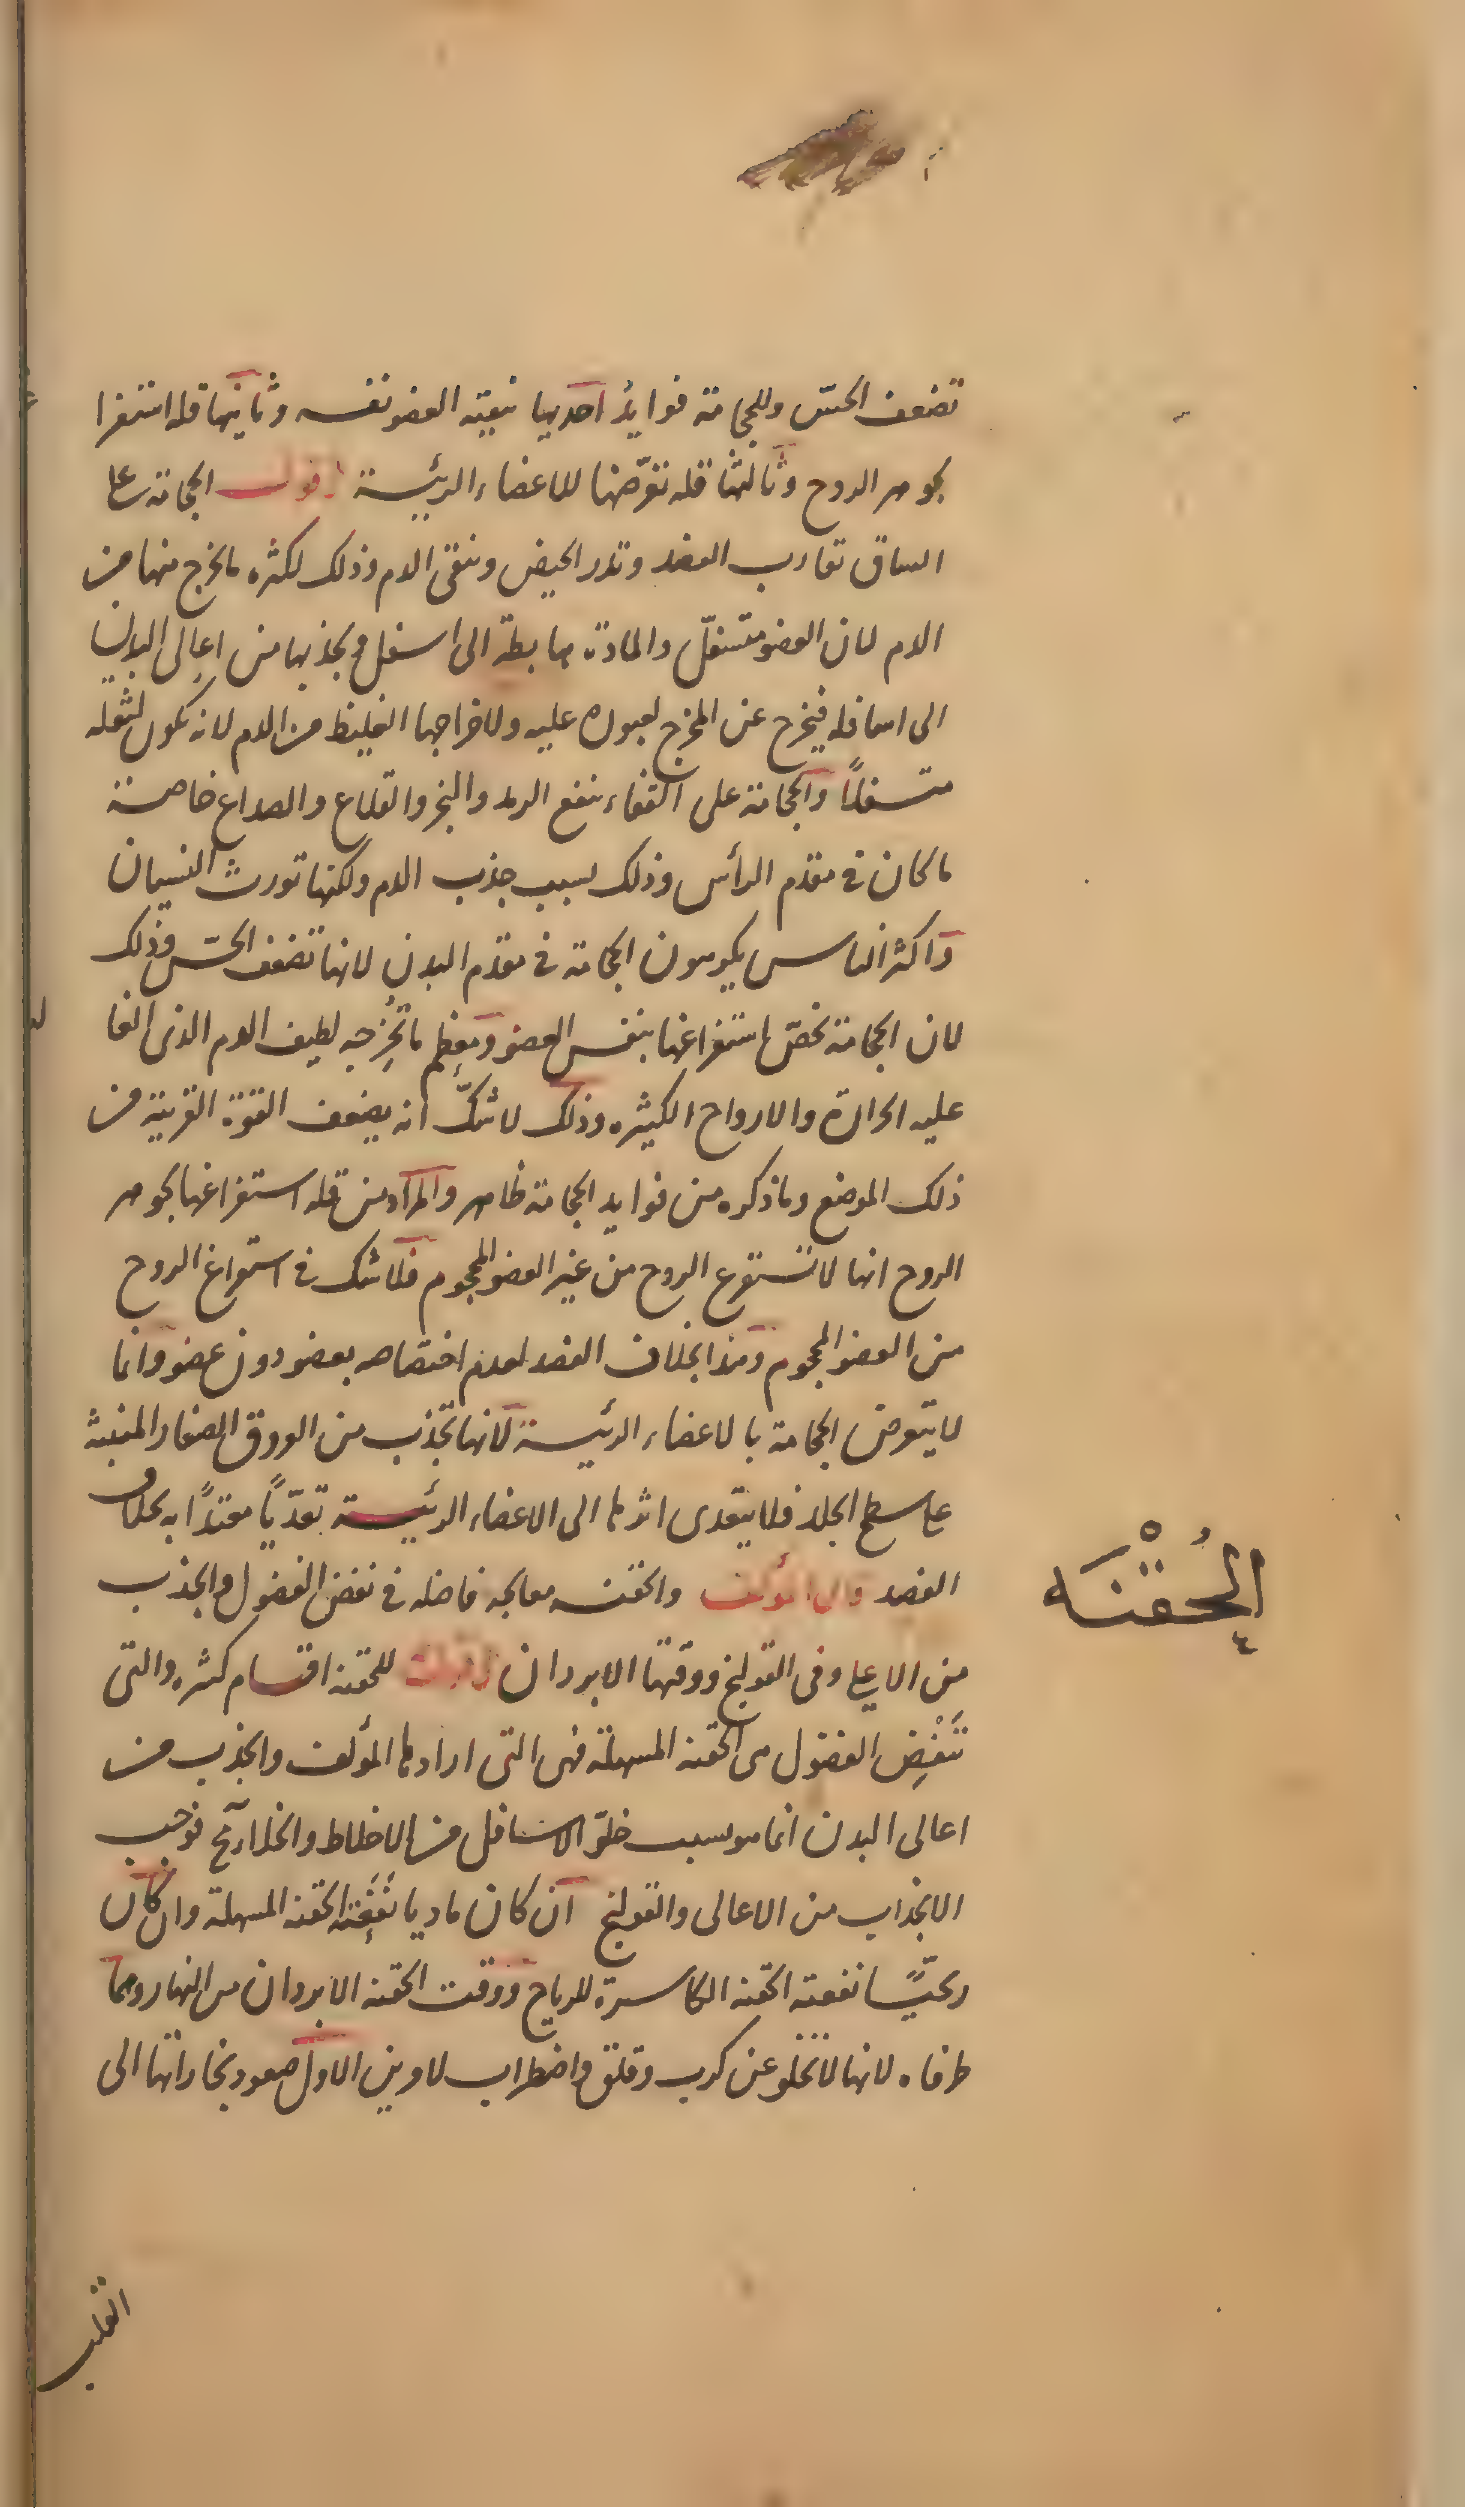 تضعف الحسّ وللحجامة فوايدُ احديها تبقيته العضو نفسه وثانيها قله استفرا
بجوهر الروح وثالثها قله تعرّضها للاعضاء الرئيسة اقول الحجامة على
الساق تقارب الفصد وتدر الحيض وتنقى الدم وذلك لكثره ما يخرج منها من
الدم لان العضو متسفلّ والمادة هابطة الى اسفل وبجذبها من اعالى البدن
الى اسافله فيخرج عن المخرج لعبوره عليه ولاخراجها الغليظ من الدم لانه يكون لثقله
متسفلاً والحجامة على القفاء ينفع الرمد والبخر والقلاع والصداع خاصة
ما كان فى مقدّم الرأس وذلك بسبب جذب الدم ولكنها تورث النسيان
واكثر الناس يكرهون الحجامة فى مقدّم البدن لانها تضعف الحسّ وذلك
لان الحجامة يخصّ استفراغها بنفس العضو ومعظم ما تُخرِجه لطيف الدم الذى الغا
عليه الحرارة والارواح الكثيره وذلك لا شكّ انه يضعف القوة القريبة من
ذلك الموضع وما ذكره من فوايد الحجامة ظاهر والمراد من قله استفراغها بجوهر
الروح انها لا تستفرغ الروح من غير العضو المحجوم فلا شك فى استفراغ الروح
من العضو المحجوم وهذا بخلاف الفصد لعدم اختصاصه بعضو دون عضو وانما
لا يتعرض الحجامة بالاعضاء الرئيسة لانها تجذب من العروق الصغار المنبثة
على سطح الجلد فلا يتعدى اثرها الى الاعضاء الرئيسة تعدّياً معتدّاً به بخلاف
الفصد قال المؤلف والحقنه معالجه فاضله فى نفض الفضول والجذب
من الاعلى وفى القولنج ووقتها الابردان اقول للحقنه اقسام كثره والتى
تَنْفِض الفضول هى الحقنه المسهلة فهى التى ارادها المؤلف والجذب من
اعالى البدن انما هو بسبب خلوّ الاسافل من الاخلاط والخلاء مح فوجب
الانجذاب من الاعالى والقولنج ان كان ماديا نَفَعَته الحقنه المسهلة وان كان
ريحيًّا نفعته الحقنه الكاسرة للرياح ووقت الحقنه الابردان من النهار وهما
طرفاه لانها لا تخلو عن كرب وقلق واضطراب لامرين الاول صعود بخاراتها الى
الحُقْنَه
القلب